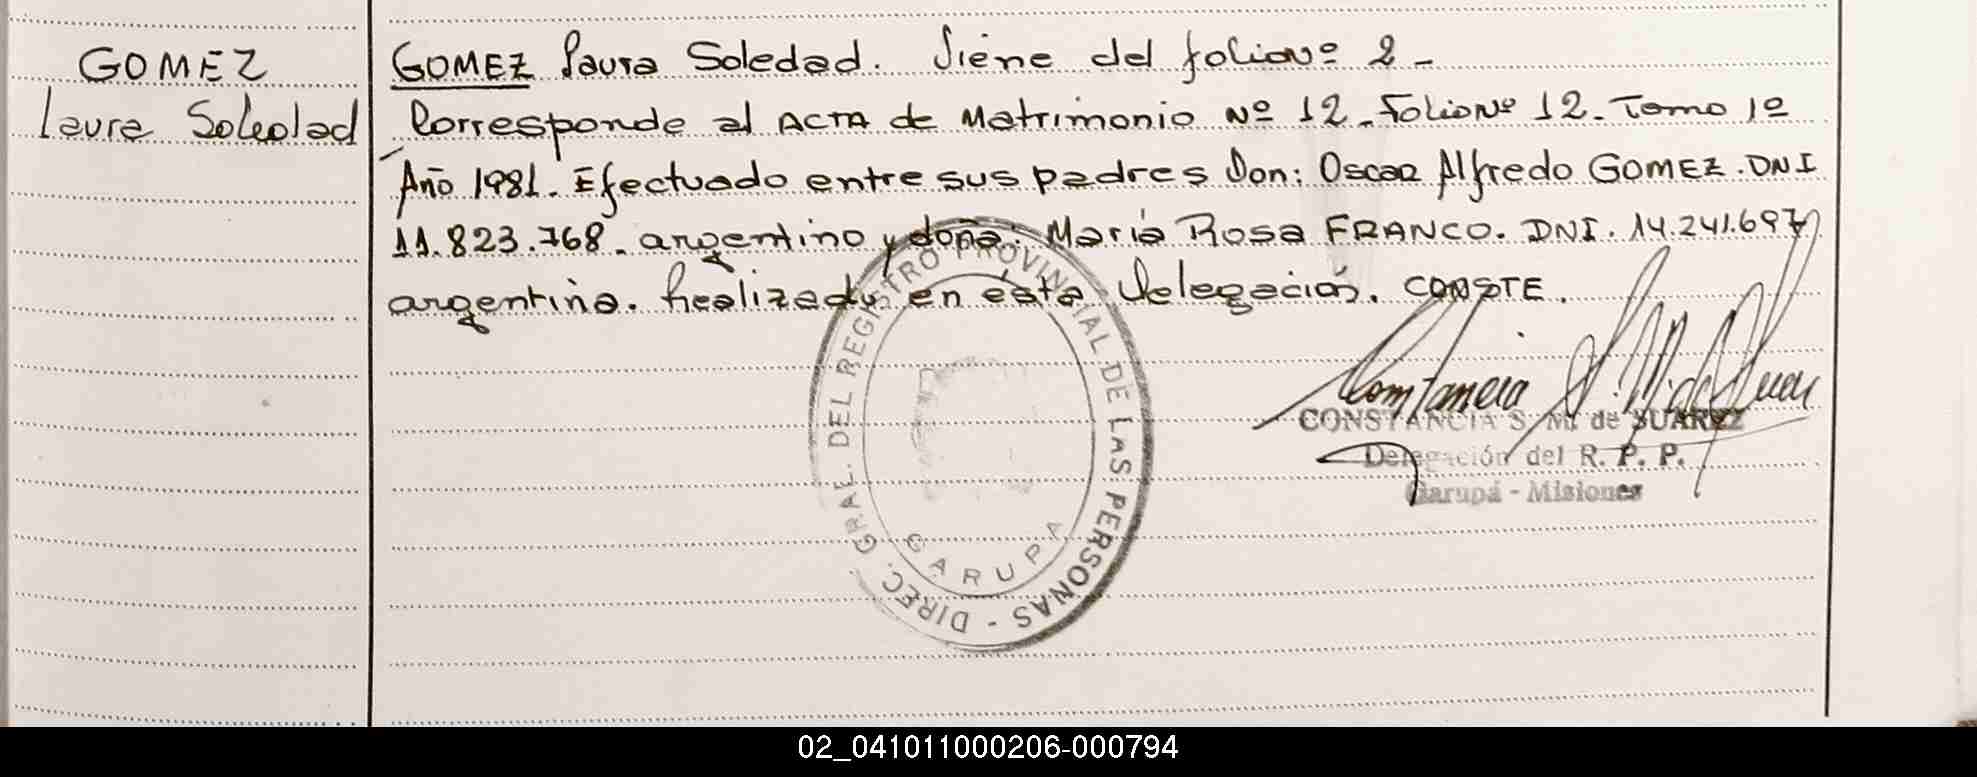 GOMEZ
Laura Soledad
GOMEZ Laura Soledad. Viene del folio Nº 2 -
Corresponde al ACTA de Matrimonio Nº 12 - Folio Nº 12 - Tomo 1º
Año 1981. Efectuado entre sus padres Don: Oscar Alfredo GOMEZ. DNI
11.823.768. argentino y doña: María Rosa FRANCO. DNI. 14.241.697
argentina. Realizado en ésta Delegación. CONSTE.
DIREC. GRAL. DEL REGISTRO PROVINCIAL DE LAS PERSONAS -
GARUPA
CONSTANCIA S. M. de SUAREZ
Delegación del R. P. P.
Garupá - Misiones
02_041011000206-000794